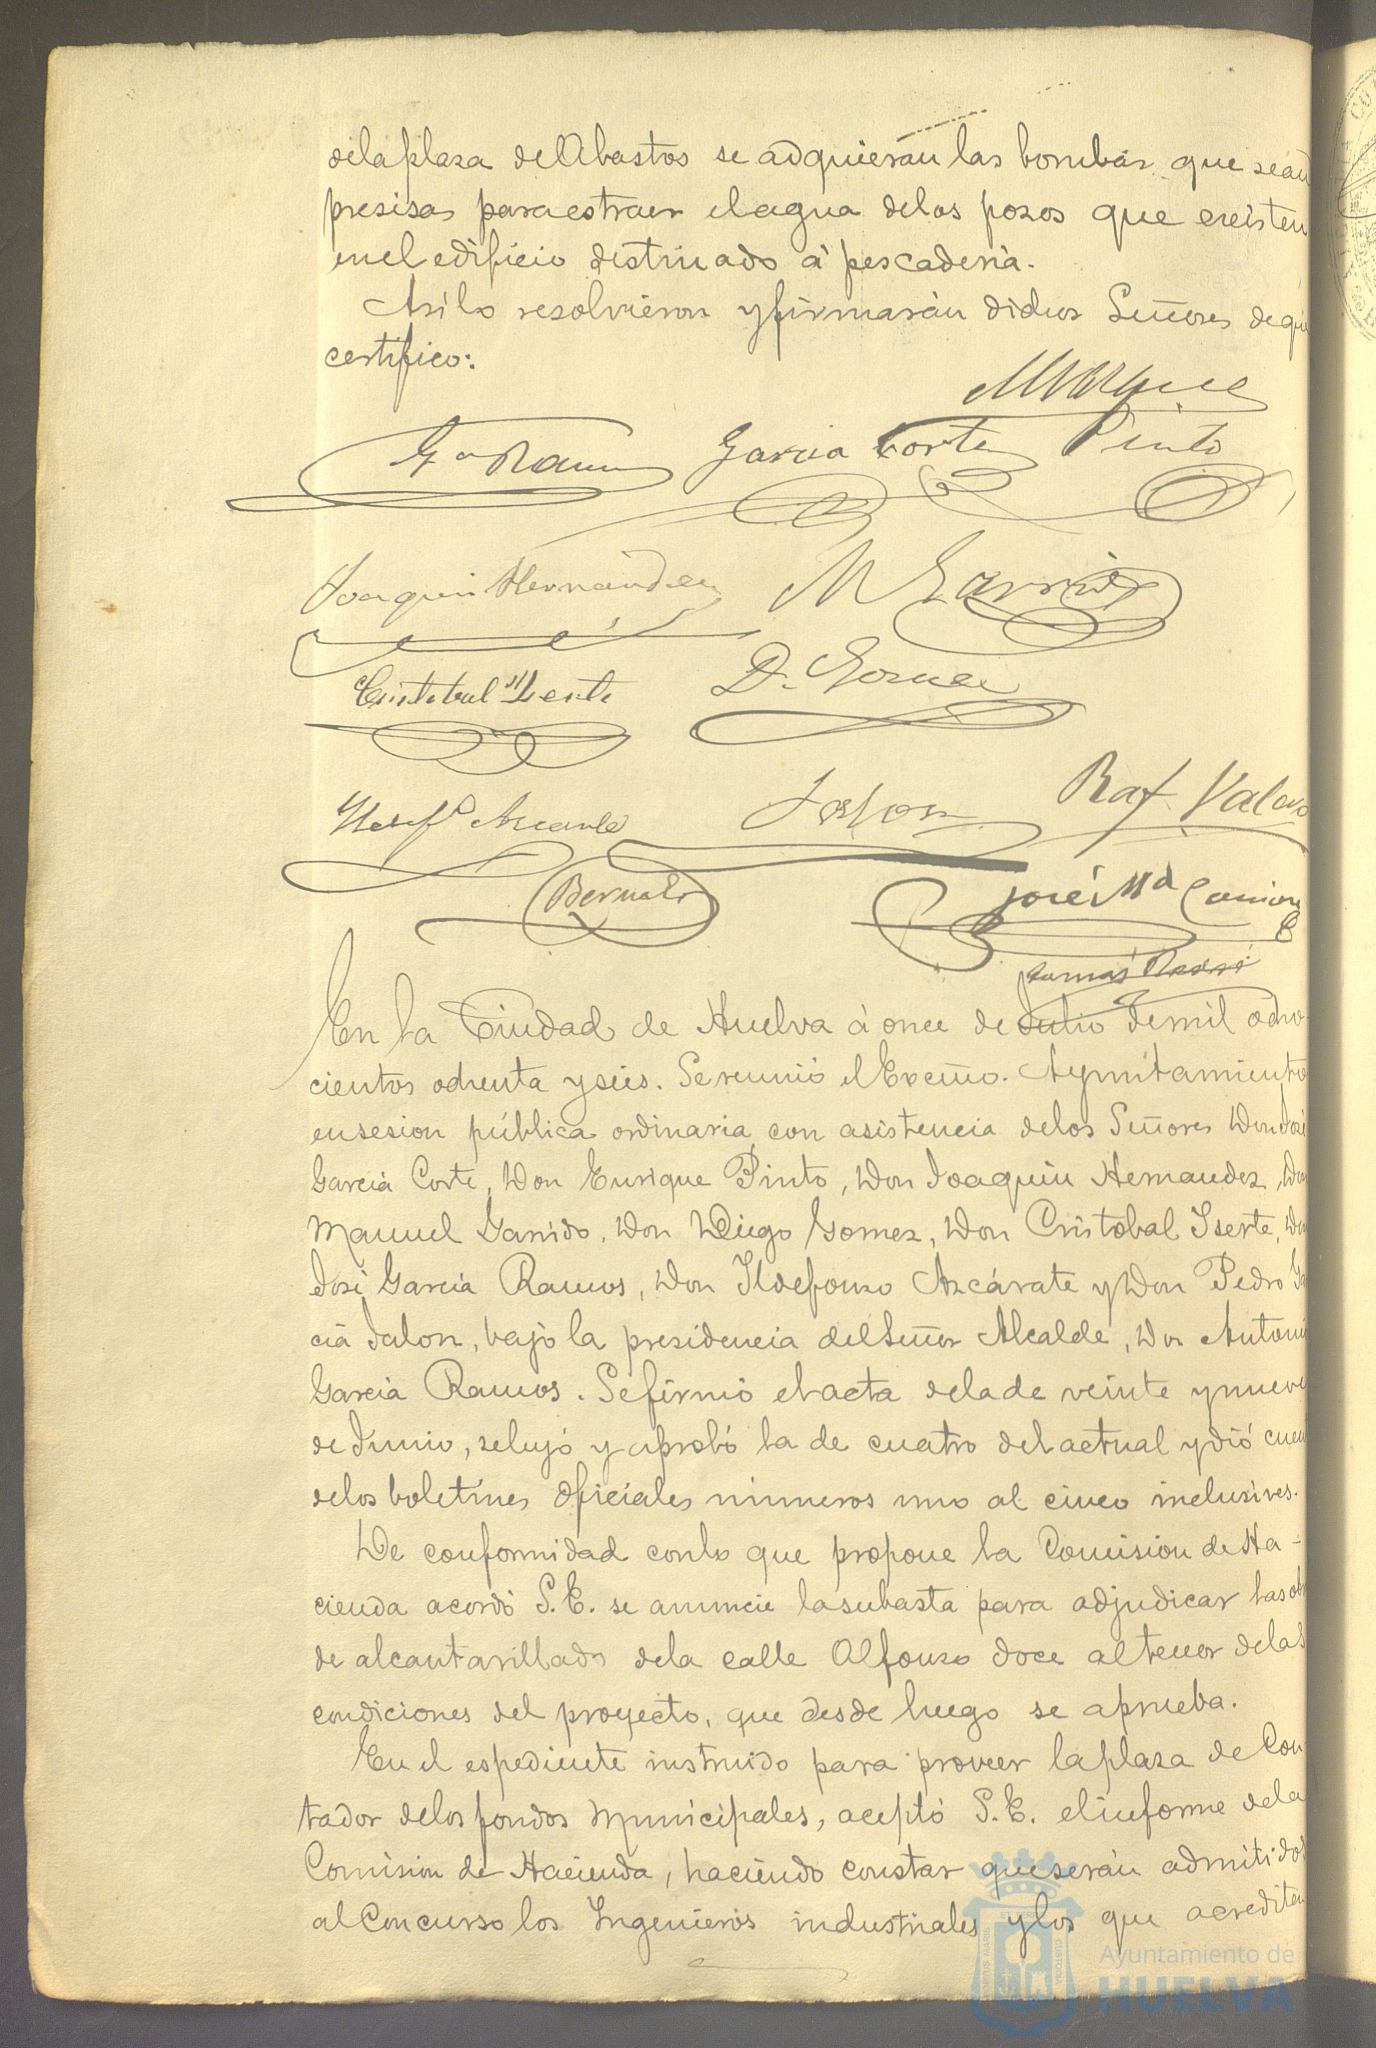 dela plaza de Abastos se adquieran las bombas que sean
presisas para estraer el agua delos pozos que ecsisten
en el edificio destinado á pescaderia.
Asi lo resolvieron y firmarán dichos Señores de que
certifico:
Marquez
Ga Ramos Garcia Corte Pinto
Joaquin Hernandez M Garrido
Cristobal Yserte D. Gomez
Ildefo Azcarate Jalon Raf. Valero
Bernal José Ma
Tomás
En la Ciudad de Huelva á once de Julio de mil ocho-
cientos ochenta y seis. Se reunió el Excmo. Ayuntamiento
en sesion pública ordinaria con asistencia delos Señores Don José
Garcia Corte, Don Enrique Pinto, Don Joaquin Hernandez, Don
Manuel Garrido, Don Diego Gomez, Don Cristobal Yserte, Don
José Garcia Ramos, Don Ildefonso Azcárate y Don Pedro Gar
cia Jalon, bajo la presidencia del Señor Alcalde, Don Antonio
Garcia Ramos. Se firmó el acta dela de veinte y nueve
de Junio, se leyó y aprobó la de cuatro del actual y dió cuen
delos boletines oficiales números uno al cinco inclusives.
De conformidad con lo que propone la Comision de Ha-
cienda acordó S.E. se anuncie la subasta para adjudicar las obr
de alcantarillado dela calle Alfonso doce al tenor delas
condiciones del proyecto, que desde luego se aprueba.
En el espediente instruido para proveer la plaza de Con
tador delos fondos Municipales, aceptó S.E. el informe dela
Comision de Hacienda, haciendo constar que serán admitidos
al Concurso los Ingenieros industriales y los que acrediten
Ayuntamiento de
HUELVA